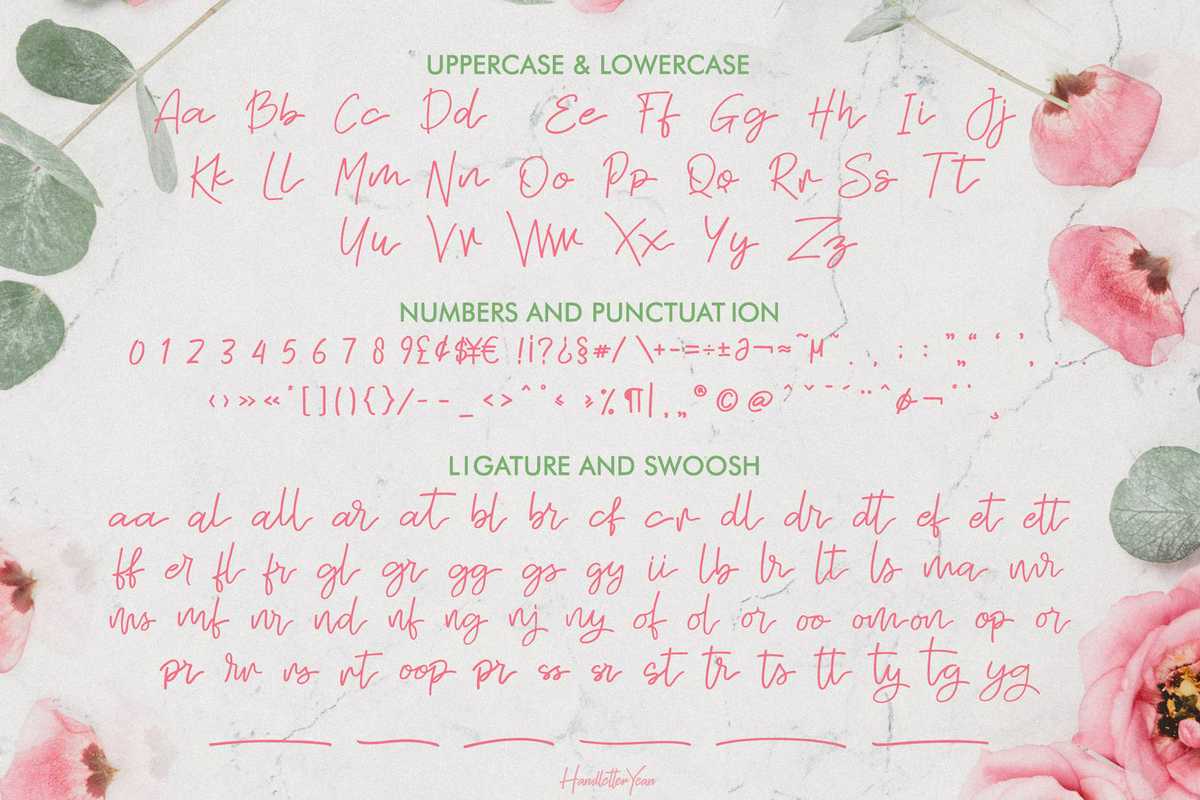 UPPERCASE & LOWERCASE
Aa Bb Cc Dd Ee Ff Gg Hh Ii Jj
Kk Ll Mm Nn Oo Pp Qq Rr Ss Tt
Uu Vv Ww Xx Yy Zz
NUMBERS AND PUNCTUATION
0 1 2 3 4 5 6 7 8 9 £ ¢ $ ¥ € ! ¡ ? ¿ § # / \ + - = ÷ ± ∂ ¬ ≈ ~ µ ~ . , ; : ” „ “ ‘ ’ , . .
‹ › » « * [ ] ( ) { } / - - _ < > ^ ° % ¶ | , „ ® © @ ¢ ¬
LIGATURE AND SWOOSH
aa al all ar at bl br cf cr dl dr dt ef et ett
ff er fl fr gl gr gg gs gy ii lb lr lt ls ma mr
ms mf nr nd nf ng nj ny of ol or oo om on op or
pr rv rs rt oop pr ss sr st tr ts tt ty tg yg
HandletterYean